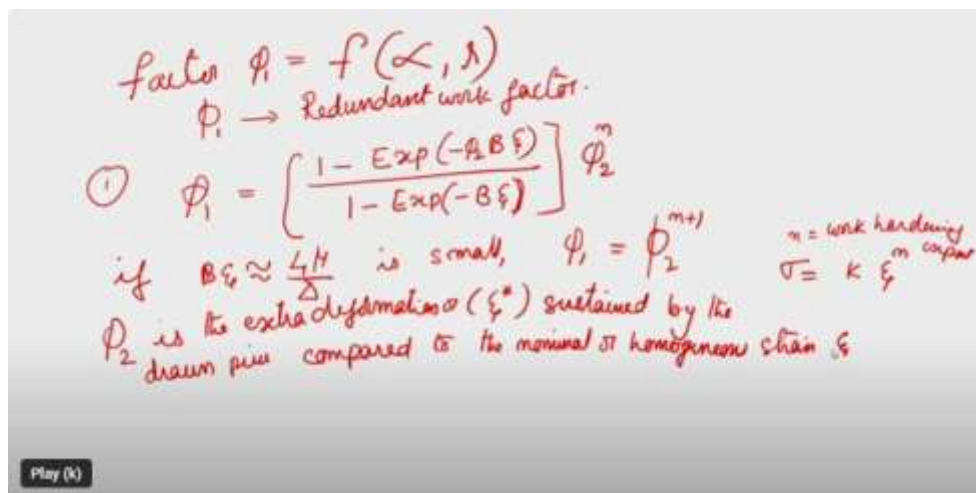 factor φ₁ = f(α, r)
φ₁ → Redundant work factor.
① φ₁ = [ (1 - Exp(-φ₂Bξ)) / (1 - Exp(-Bξ)) ] φ₂ᵐ
if Bξ ≈ 4μ/Δ is small, φ₁ = φ₂ᵐ⁺¹
n = work hardening
σ = K ξᵐ
φ₂ is the extra deformation (ξ*) sustained by the
drawn compared to the nominal or homogeneous strain ξ
Play (k)